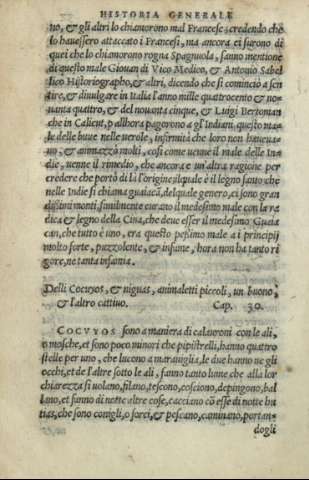 HISTORIA GENERALE
no, & gli altri lo chiamorono mal Francese; credendo che
lo hauessero attaccato i Francesi, ma ancora ci furono di
quei che lo chiamorono rogna Spagnuola, fanno mentione
di questo male Giouan di Vico Medico, & Antonio Sabel
lico Historiographo, & altri, dicendo che si cominciò a sen
tire, & diuulgare in Italia l'anno mille quattrocento & no-
uanta quattro, & del nouanta cinque, & Luigi Bertoman
che in Calicut, pallhora pagorono a gl'Indiani questo ma-
le delle buue nelle uerole, infirmità che loro non haueua-
no; & ammazzò molti, così come uenne il male delle In-
die, uenne il rimedio, che ancora è un'altra ragione per
credere che portò di là l'origine, ilquale è il legno santo che
nelle Indie si chiama guaiacã, del quale genero, ci sono gran
dissimi monti, similmente curano il medesimo male con la ra
dica & legno della Cina, che deue esser il medesimo Guaia
can, che tutto è uno, era questo pessimo male a i principij
molto forte, puzzolente, & infame, hora non ha tanto ri
gore, ne tanta infamia.
Delli Cocuyos, & niguas, animaletti piccoli, un buono,
& l'altro cattiuo. Cap. 30.
COCVYOS sono a maniera di calauroni con le ali,
o mosche, et sono poco minori che pipistrelli, hanno quattro
stelle per uno, che lucono a marauiglia, le due hanno ne gli
occhi, et de l'altre sotto le ali, fanno tanto lume che alla lor
chiarezza si uolano, filano, tescono, coscìono, depingono, bal
lano, et fanno di notte altre cose, cacciano cõ esse di notte hu
tias, che sono conigli, o sorci, & pescano, caminano, portan-
dogli